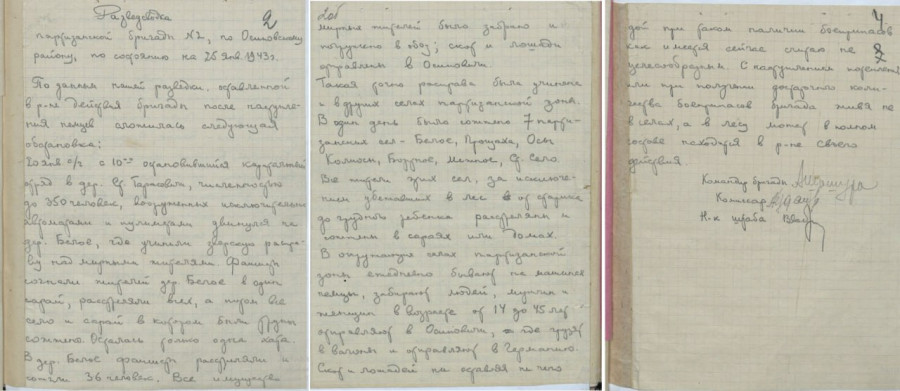 Разведсводка
2
партизанской бригады №2, по Осиповичскому
району, по состоянию на 26 янв. 1943 г.
По данным нашей разведки, оставленной
в р-не действия бригады после наступле-
ния немцев сложилась следующая
обстановка:
20 янв. с/г с 10⁰⁰ остановившийся карательный
отряд в дер. Ст. Тарасовичи, численностью
до 350 человек, вооруженных исключительно
автоматами и пулеметами двинулся на
дер. Белое, где учинили зверскую распра-
ву над мирными жителями. Фашисты
согнали жителей дер. Белое в один
сарай, расстреляли всех, а потом все
село и сарай в котором были трупы
сожжено. Осталась только одна хата.
В дер. Белое фашисты расстреляли и
сожгли 36 человек. Все имущество
2об
мирных жителей было забрано и
погружено в обоз; скот и лошади
отправлены в Осиповичи.
Такая точно расправа была учинена
и в других селах партизанской зоны.
В один день было сожжено 7 парти-
занских сел - Белое,
Ст. Село
Все жители этих сел, за исключе-
нием убежавших в лес от старика
до грудного ребенка расстреляны и
сожжены в сараях или домах.
В окружающие села партизанской
зоны ежедневно бывают на машинах
немцы, забирают людей, мужчин и
женщин в возрасте от 14 до 45 лет
отправляют в Осиповичи, где грузят
в вагоны и отправляют в Германию.
Скот и лошадей не оставляя ни чего
4
3
при таком наличии боеприпасов
как имеется сейчас считаю не
целесообразным. С наступлением потепления
или при получении доварного коли-
чества боеприпасов бригада живя не
в селах, а в лесу может в полном
составе находится в р-не своего
действия.
Командир бригады
Комиссар
Н-к штаба